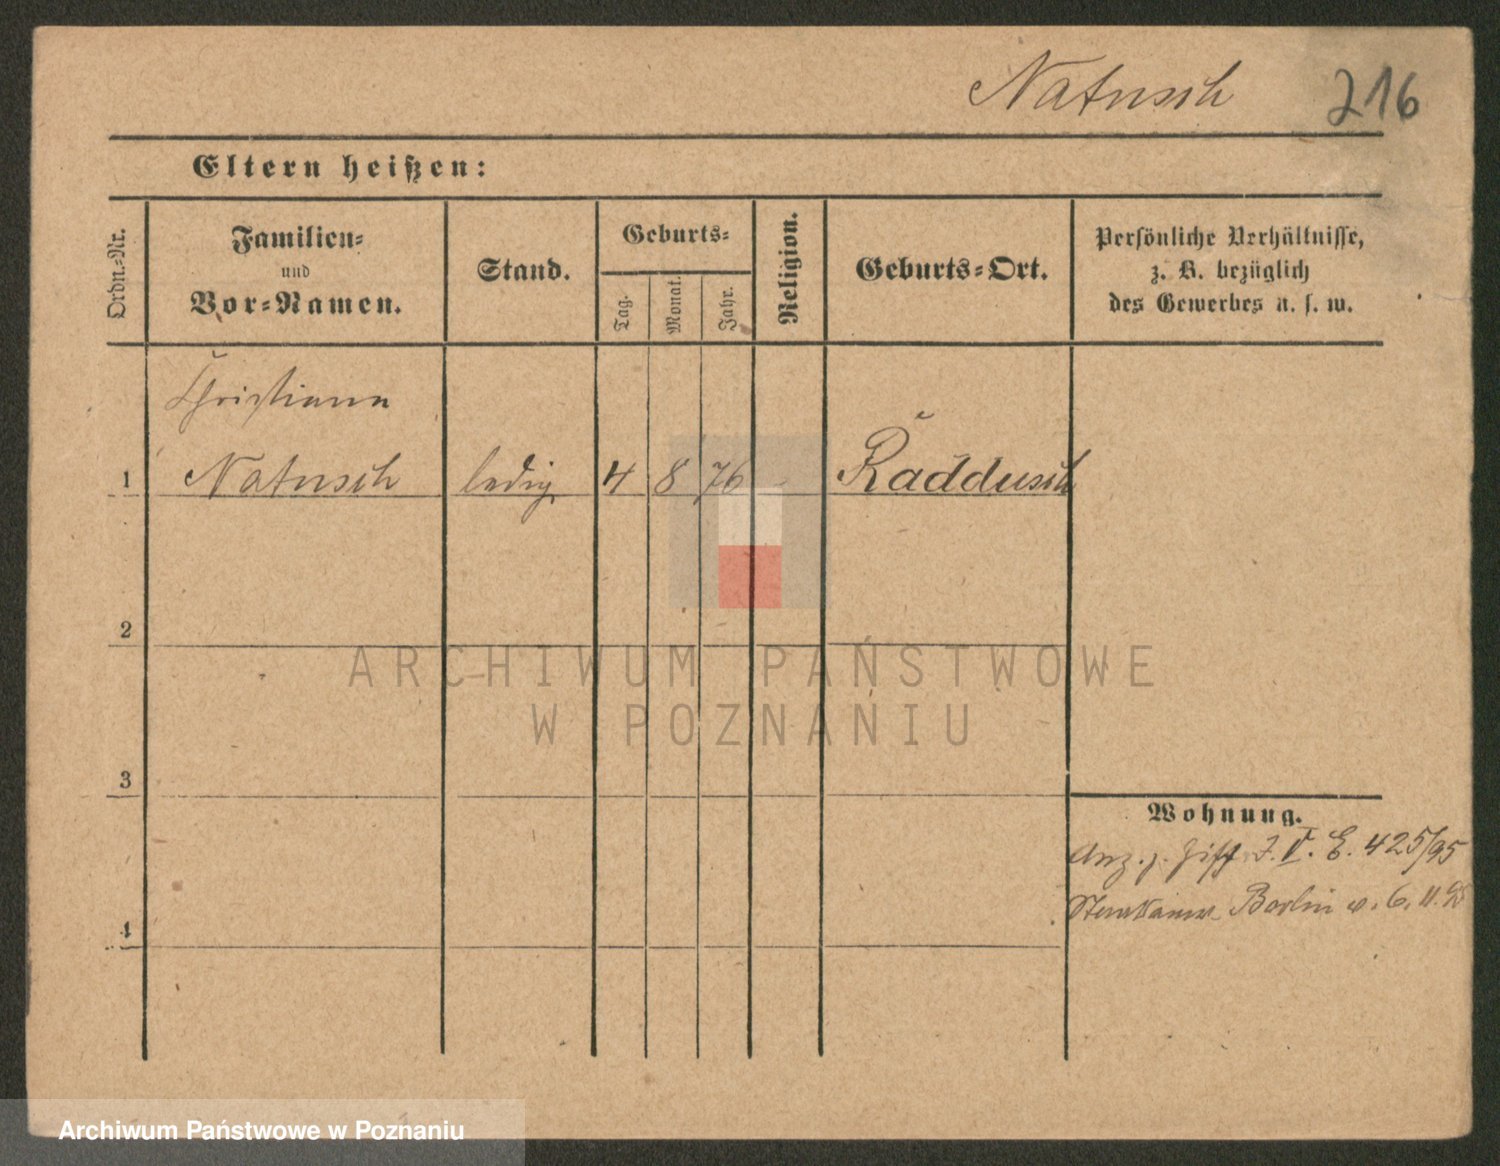 Natusch 216
Eltern heißen:
Ordn.-Nr.
Familien-
und
Vor-Namen.
Stand.
Geburts-
Tag.
Monat.
Jahr.
Religion.
Geburts-Ort.
Persönliche Verhältnisse,
z. B. bezüglich
des Gewerbes u. s. w.
Christiane
1 Natusch ledig 4 8 76 Raddusch
2
3
4
Wohnung.
Anz. z. J. V. E. 425/95
Berlin v. 6. 11. 95
ARCHIWUM PAŃSTWOWE
W POZNANIU
Archiwum Państwowe w Poznaniu